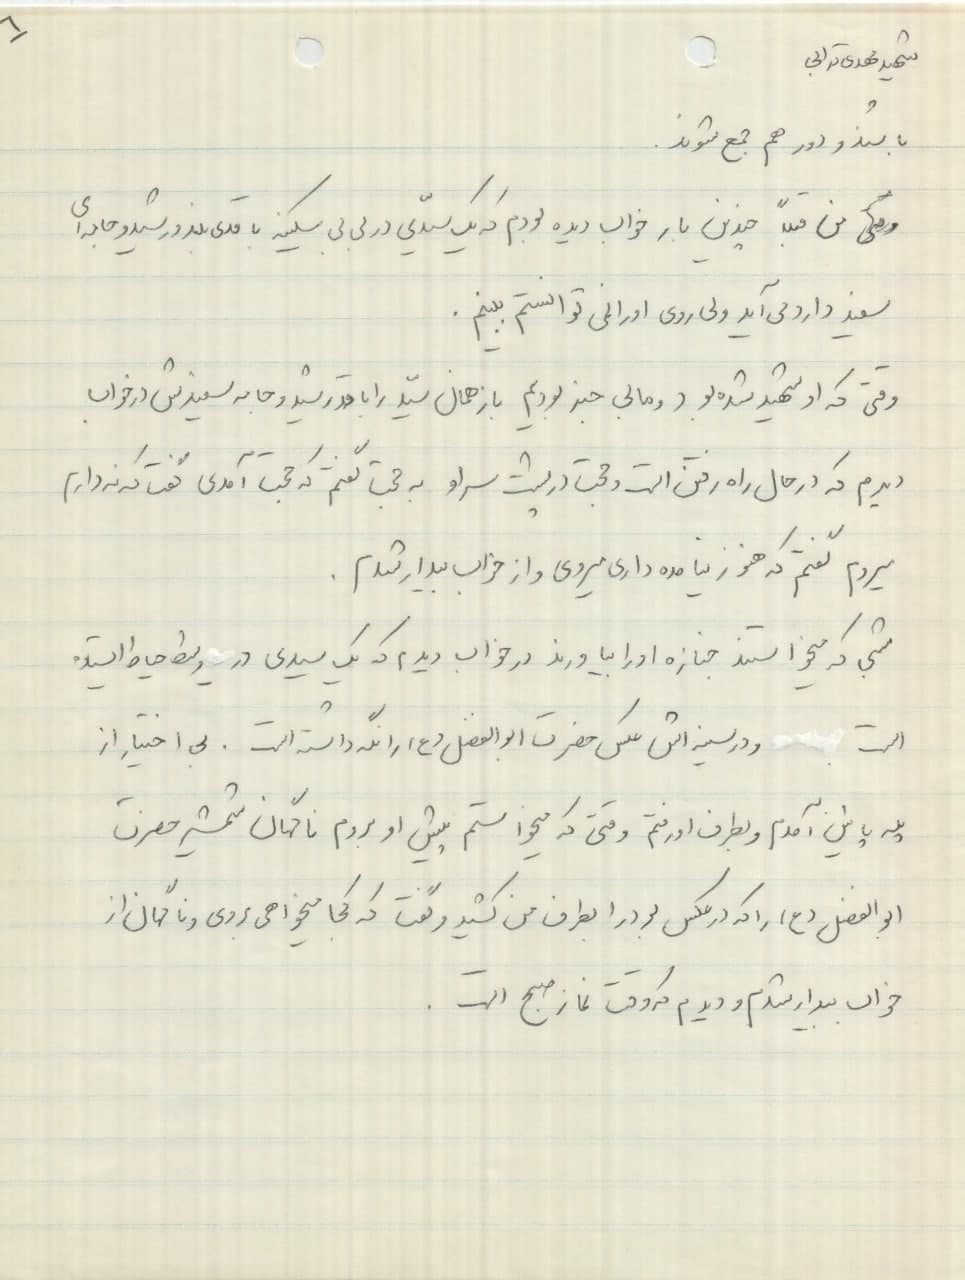 ۶
شهید مهدی ترابی
باشند و دور هم جمع شوند.
من قبلاً چندین بار خواب دیده بودم که یک سیّدی در بی بی سکینه با قدی بلند و رشید و جامه‌ای
سفید دارد می‌آید ولی روی او را نمی توانستم ببینم.
وقتی که او شهید شده بود و ما بی خبر بودیم باز همان سیّد را با قد رشید و جامه سفیدش در خواب
دیدم که در حال راه رفتن است و حجت در پشت سر او به حجت گفتم که حجت آمدی گفت که نه دارم
میروم گفتم که هنوز نیامده داری میروی و از خواب بیدار شدم.
شبی که میخواستند جنازه او را بیاورند در خواب دیدم که یک سیدی در وسط حیاط ایستاده
است و در سینه اش عکس حضرت ابوالفضل (ع) را نگه داشته است. بی اختیار از
پله پائین آمدم و بطرف او رفتم وقتی که میخواستم پیش او بروم ناگهان شمشیر حضرت
ابوالفضل (ع) را که در عکس بود را بطرف من کشید و گفت که کجا میخواهی بروی و ناگهان از
خواب بیدار شدم و دیدم که وقت نماز صبح است.